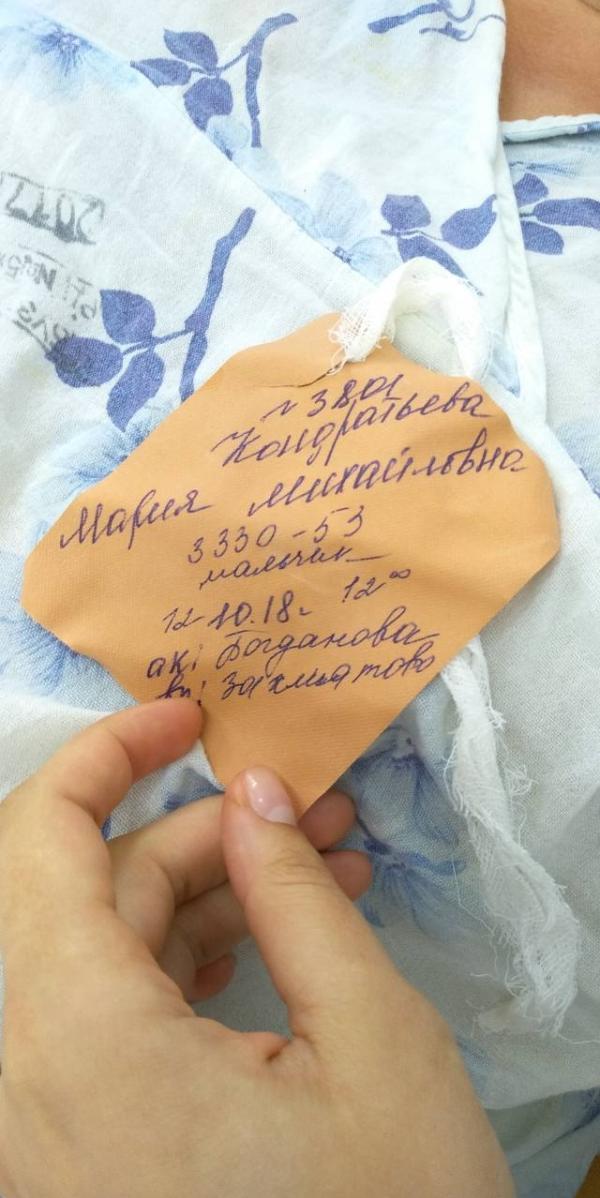 2017
№ 3801
Кондратьева
Мария Михайловна
3330-53
мальчик
12 10.18г 12⁰⁰
ак: Богданова
вп: